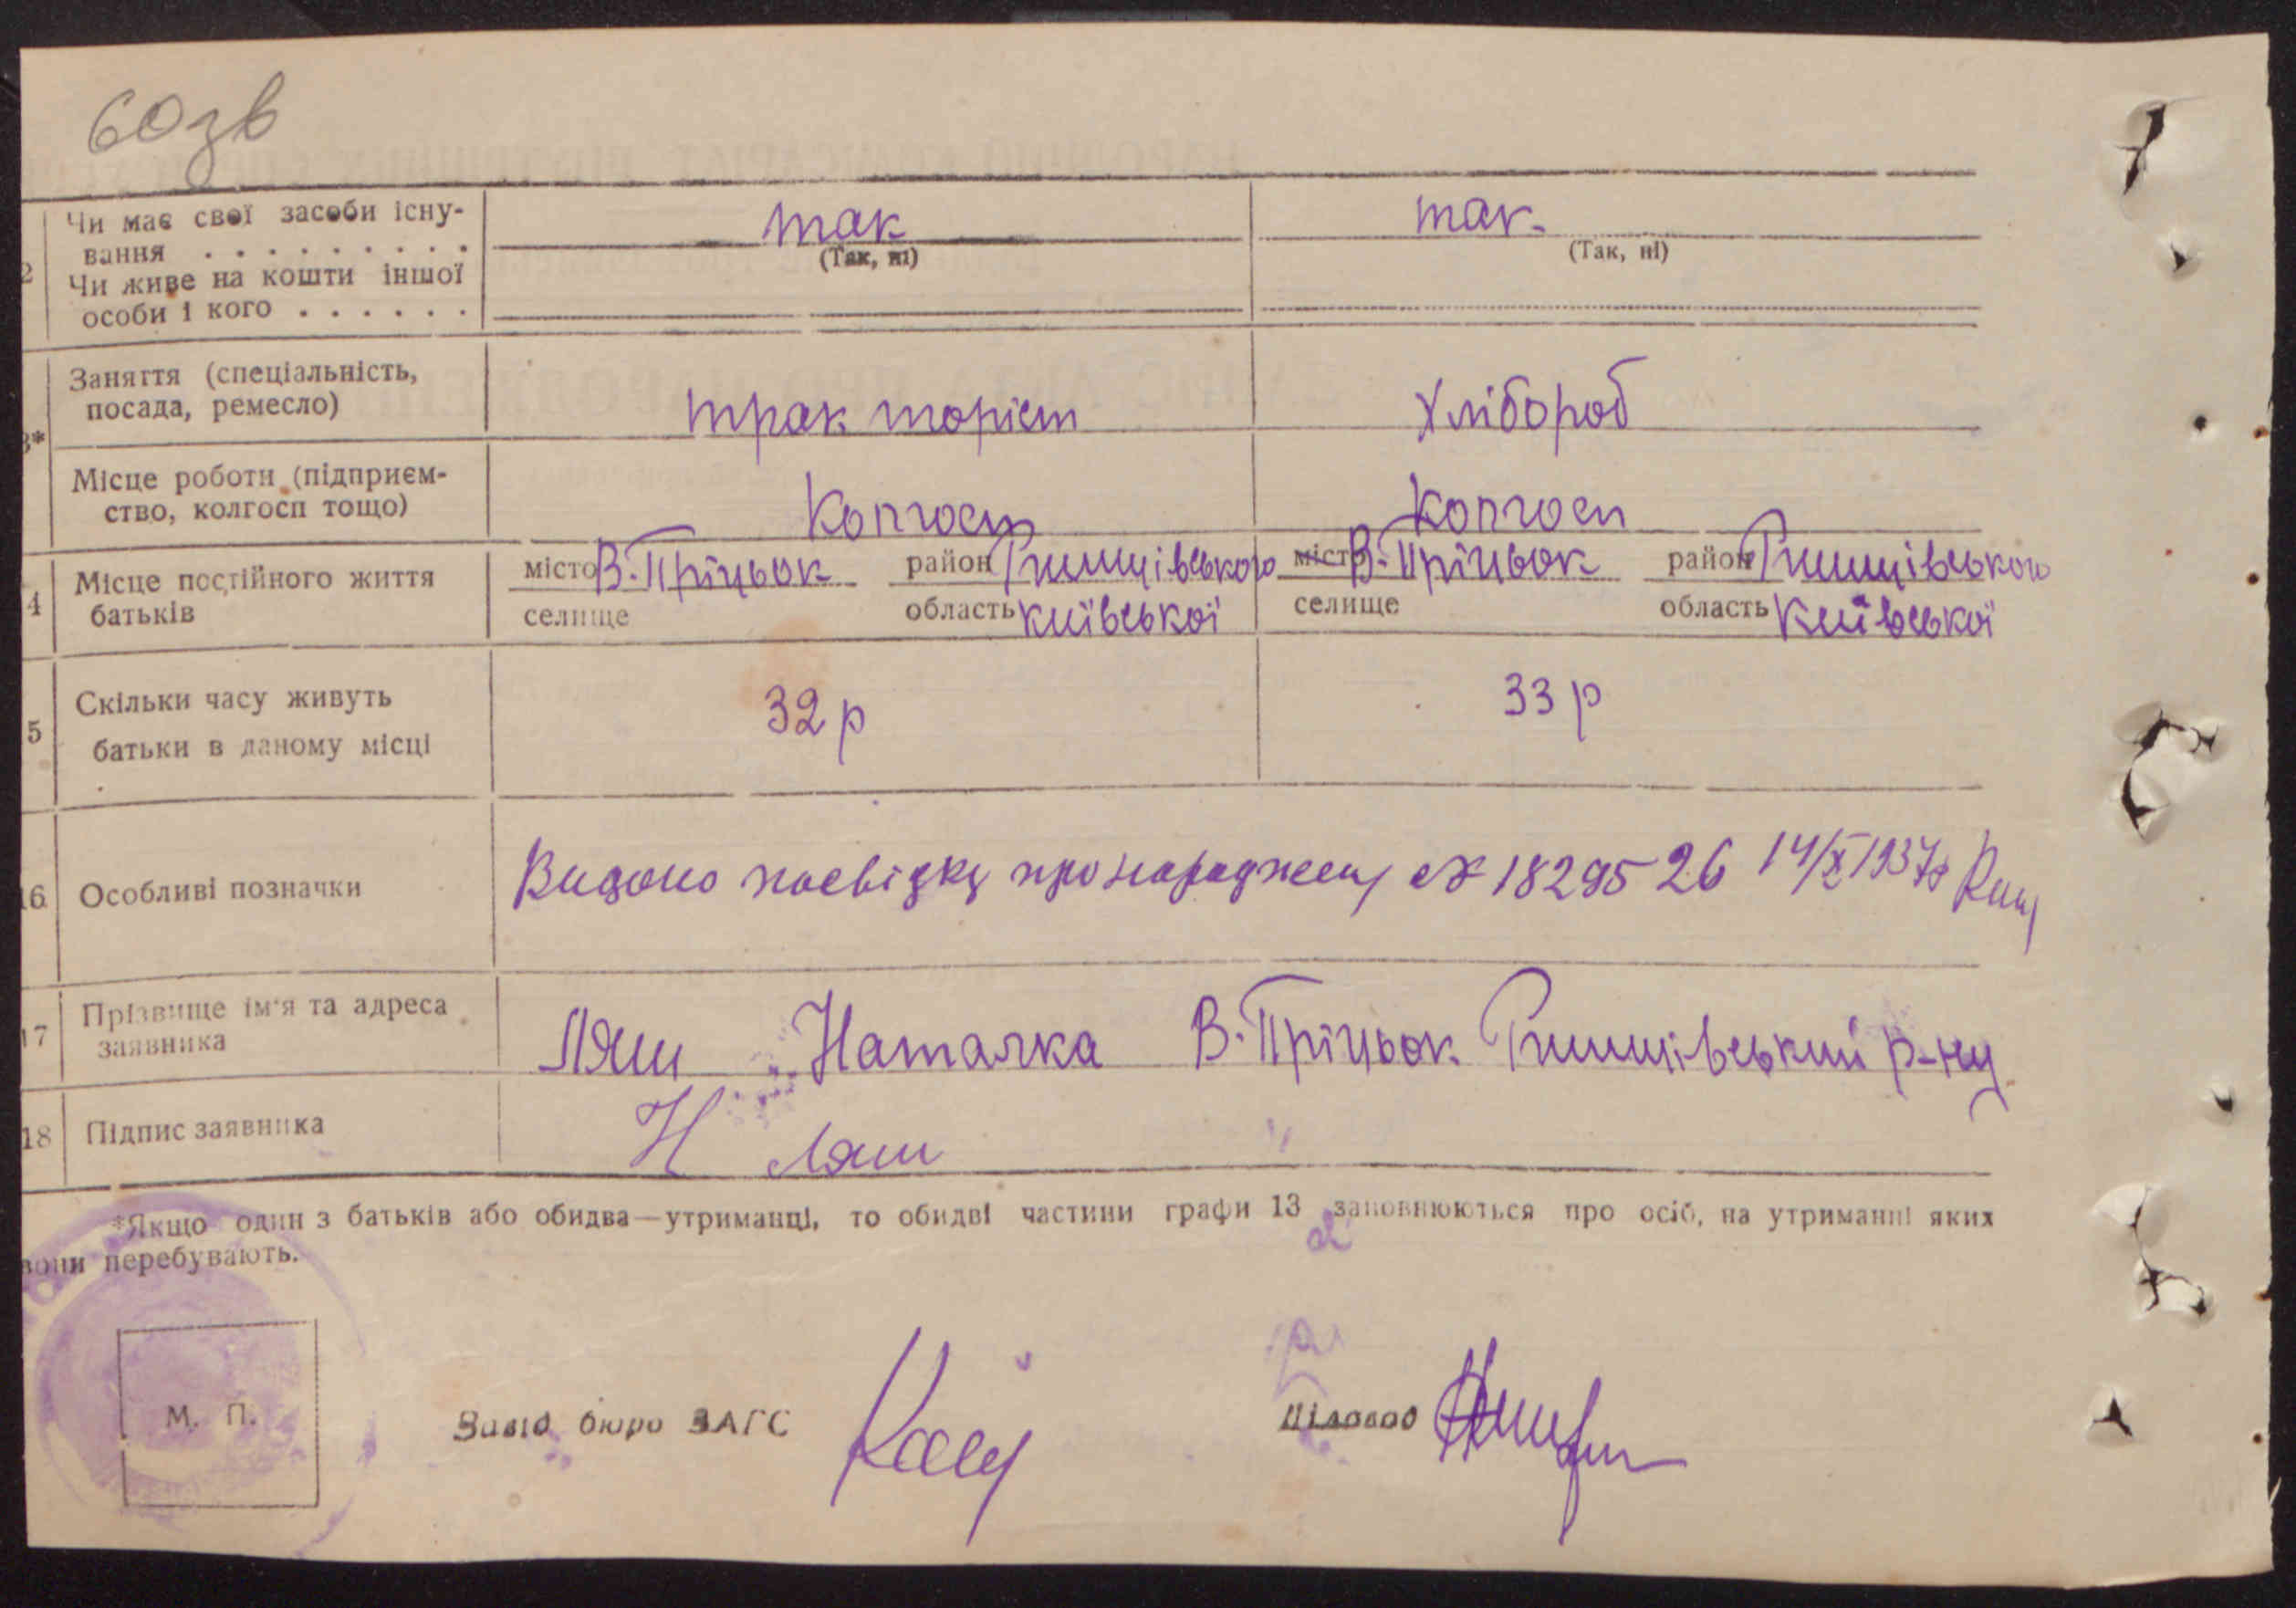 60зв
2 Чи має свої засоби існу- так так.
вання . . . . . . . . . (Так, ні) (Так, ні)
Чи живе на кошти іншої
особи і кого . . . . . .
Заняття (спеціальність,
посада, ремесло) тракторіст Хлібороб
3*
Місце роботи (підприєм-
ство, колгосп тощо) Колгосп Колгосп
4 Місце постійного життя місто В. Пріцьок район Ржищівського місто В. Пріцьок район Ржищівського
батьків селище область київської селище область Київської
5 Скільки часу живуть 32 р 33 р
батьки в даному місці
16 Особливі позначки Видано посвідку про народжен № 1829526 14/X 1937р
17 Прізвище ім'я та адреса
заявника Ляш Наталка В. Пріцьок Ржищівський р-ну
18 Підпис заявника Н Ляш
*Якщо один з батьків або обидва—утриманці, то обидві частини графи 13 заповнюються про осіб, на утриманні яких
вони перебувають.
М. П. Завід бюро ЗАГС Діловод